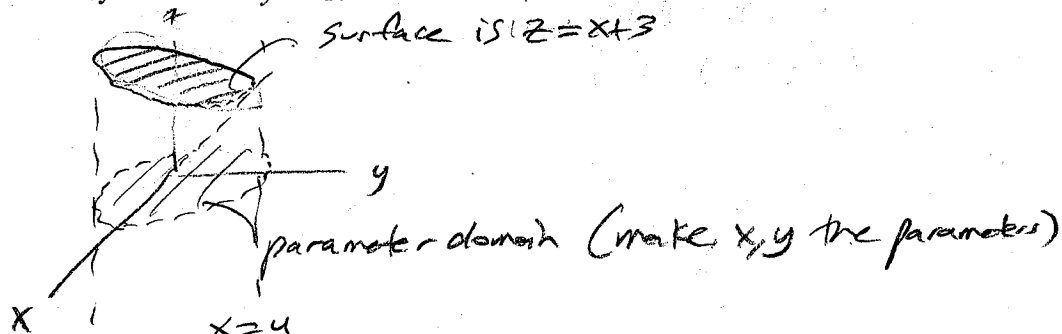 z
surface is z=x+3
y
parameter domain (make x, y the parameters)
x
x=u